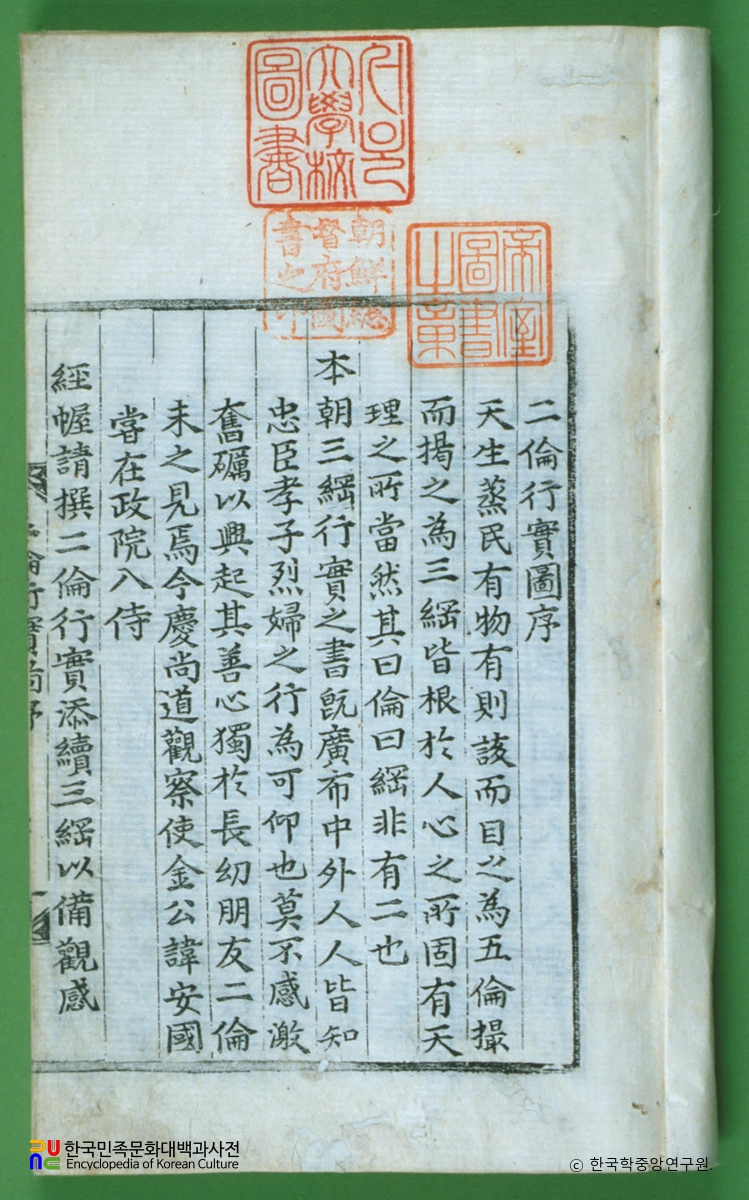 서울
大學校
圖書
朝鮮總
督府圖
書之印
帝室
圖書
之章
二倫行實圖序
天生蒸民有物有則該而目之為五倫撮
而揭之為三綱皆根於人心之所固有天
理之所當然其曰倫曰綱非有二也
本朝三綱行實之書旣廣布中外人人皆知
忠臣孝子烈婦之行為可仰也莫不感激
奮礪以興起其善心獨於長幼朋友二倫
未之見焉今慶尚道觀察使金公諱安國
嘗在政院入侍
經幄請撰二倫行實添續三綱以備觀感
二倫行實圖序
한국민족문화대백과사전
Encyclopedia of Korean Culture
© 한국학중앙연구원.